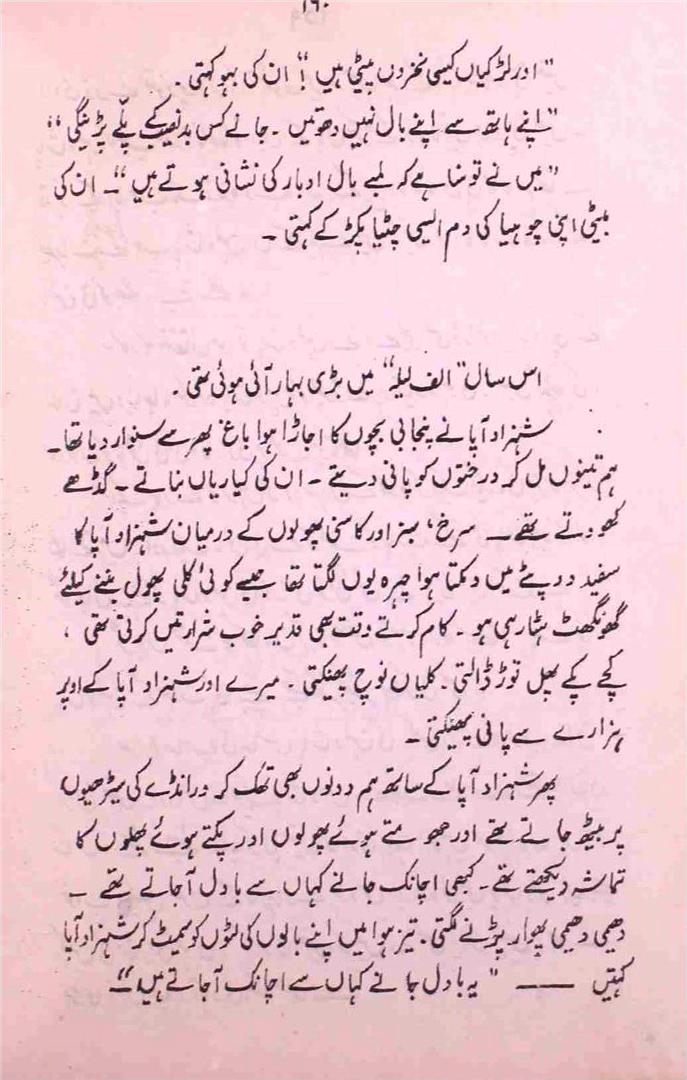 ۱۶۰
" اور لڑکیاں کیسی نخروں پیٹی ہیں !" ان کی بہو کہتی ۔
"اپنے ہاتھ سے اپنے بال نہیں دھوتیں ۔ جانے کس بدنصیب کے پلے پڑینگی"
" میں نے تو سنا ہے کہ لمبے بال ادبار کی نشانی ہوتے ہیں "۔ ان کی
بیٹی اپنی چوہیا کی دم ایسی چٹیا پکڑ کے کہتی ۔
اس سال " الف لیلہ" میں بڑی بہار آئی ہوئی تھی ۔
شہزاد آپا نے پنجابی بچوں کا اجاڑا ہوا باغ پھر سے سنوار دیا تھا ۔
ہم تینوں مل کر درختوں کو پانی دیتے ۔ ان کی کیاریاں بناتے ۔ گڈھے
کھودتے تھے ۔ سرخ ، سبز اور کاسنی پھولوں کے درمیان شہزاد آپا کا
سفید دوپٹے میں دمکتا ہوا چہرہ یوں لگتا تھا جیسے کوئی کلی پھول بننے کیلئے
گھونگھٹ ہٹا رہی ہو ۔ کام کرتے وقت بھی قدیر خوب شرارتیں کرتی تھی ،
کچے پکے پھل توڑ ڈالتی ۔ کلیاں نوچ پھینکتی ۔ میرے اور شہزاد آپا کے اوپر
ہزارے سے پانی پھینکتی ۔
پھر شہزاد آپا کے ساتھ ہم دونوں بھی تھک کر ورانڈے کی سیڑھیوں
پر بیٹھ جاتے تھے اور جھومتے ہوئے پھولوں اور پکتے ہوئے پھلوں کا
تماشہ دیکھتے تھے ۔ کبھی اچانک جانے کہاں سے بادل آجاتے تھے ۔
دھیمی دھیمی پھوار پڑنے لگتی ۔ تیز ہوا میں اپنے بالوں کی لٹوں کو سمیٹ کر شہزاد آپا
کہتیں ــــــ " یہ بادل جانے کہاں سے اچانک آجاتے ہیں "۔